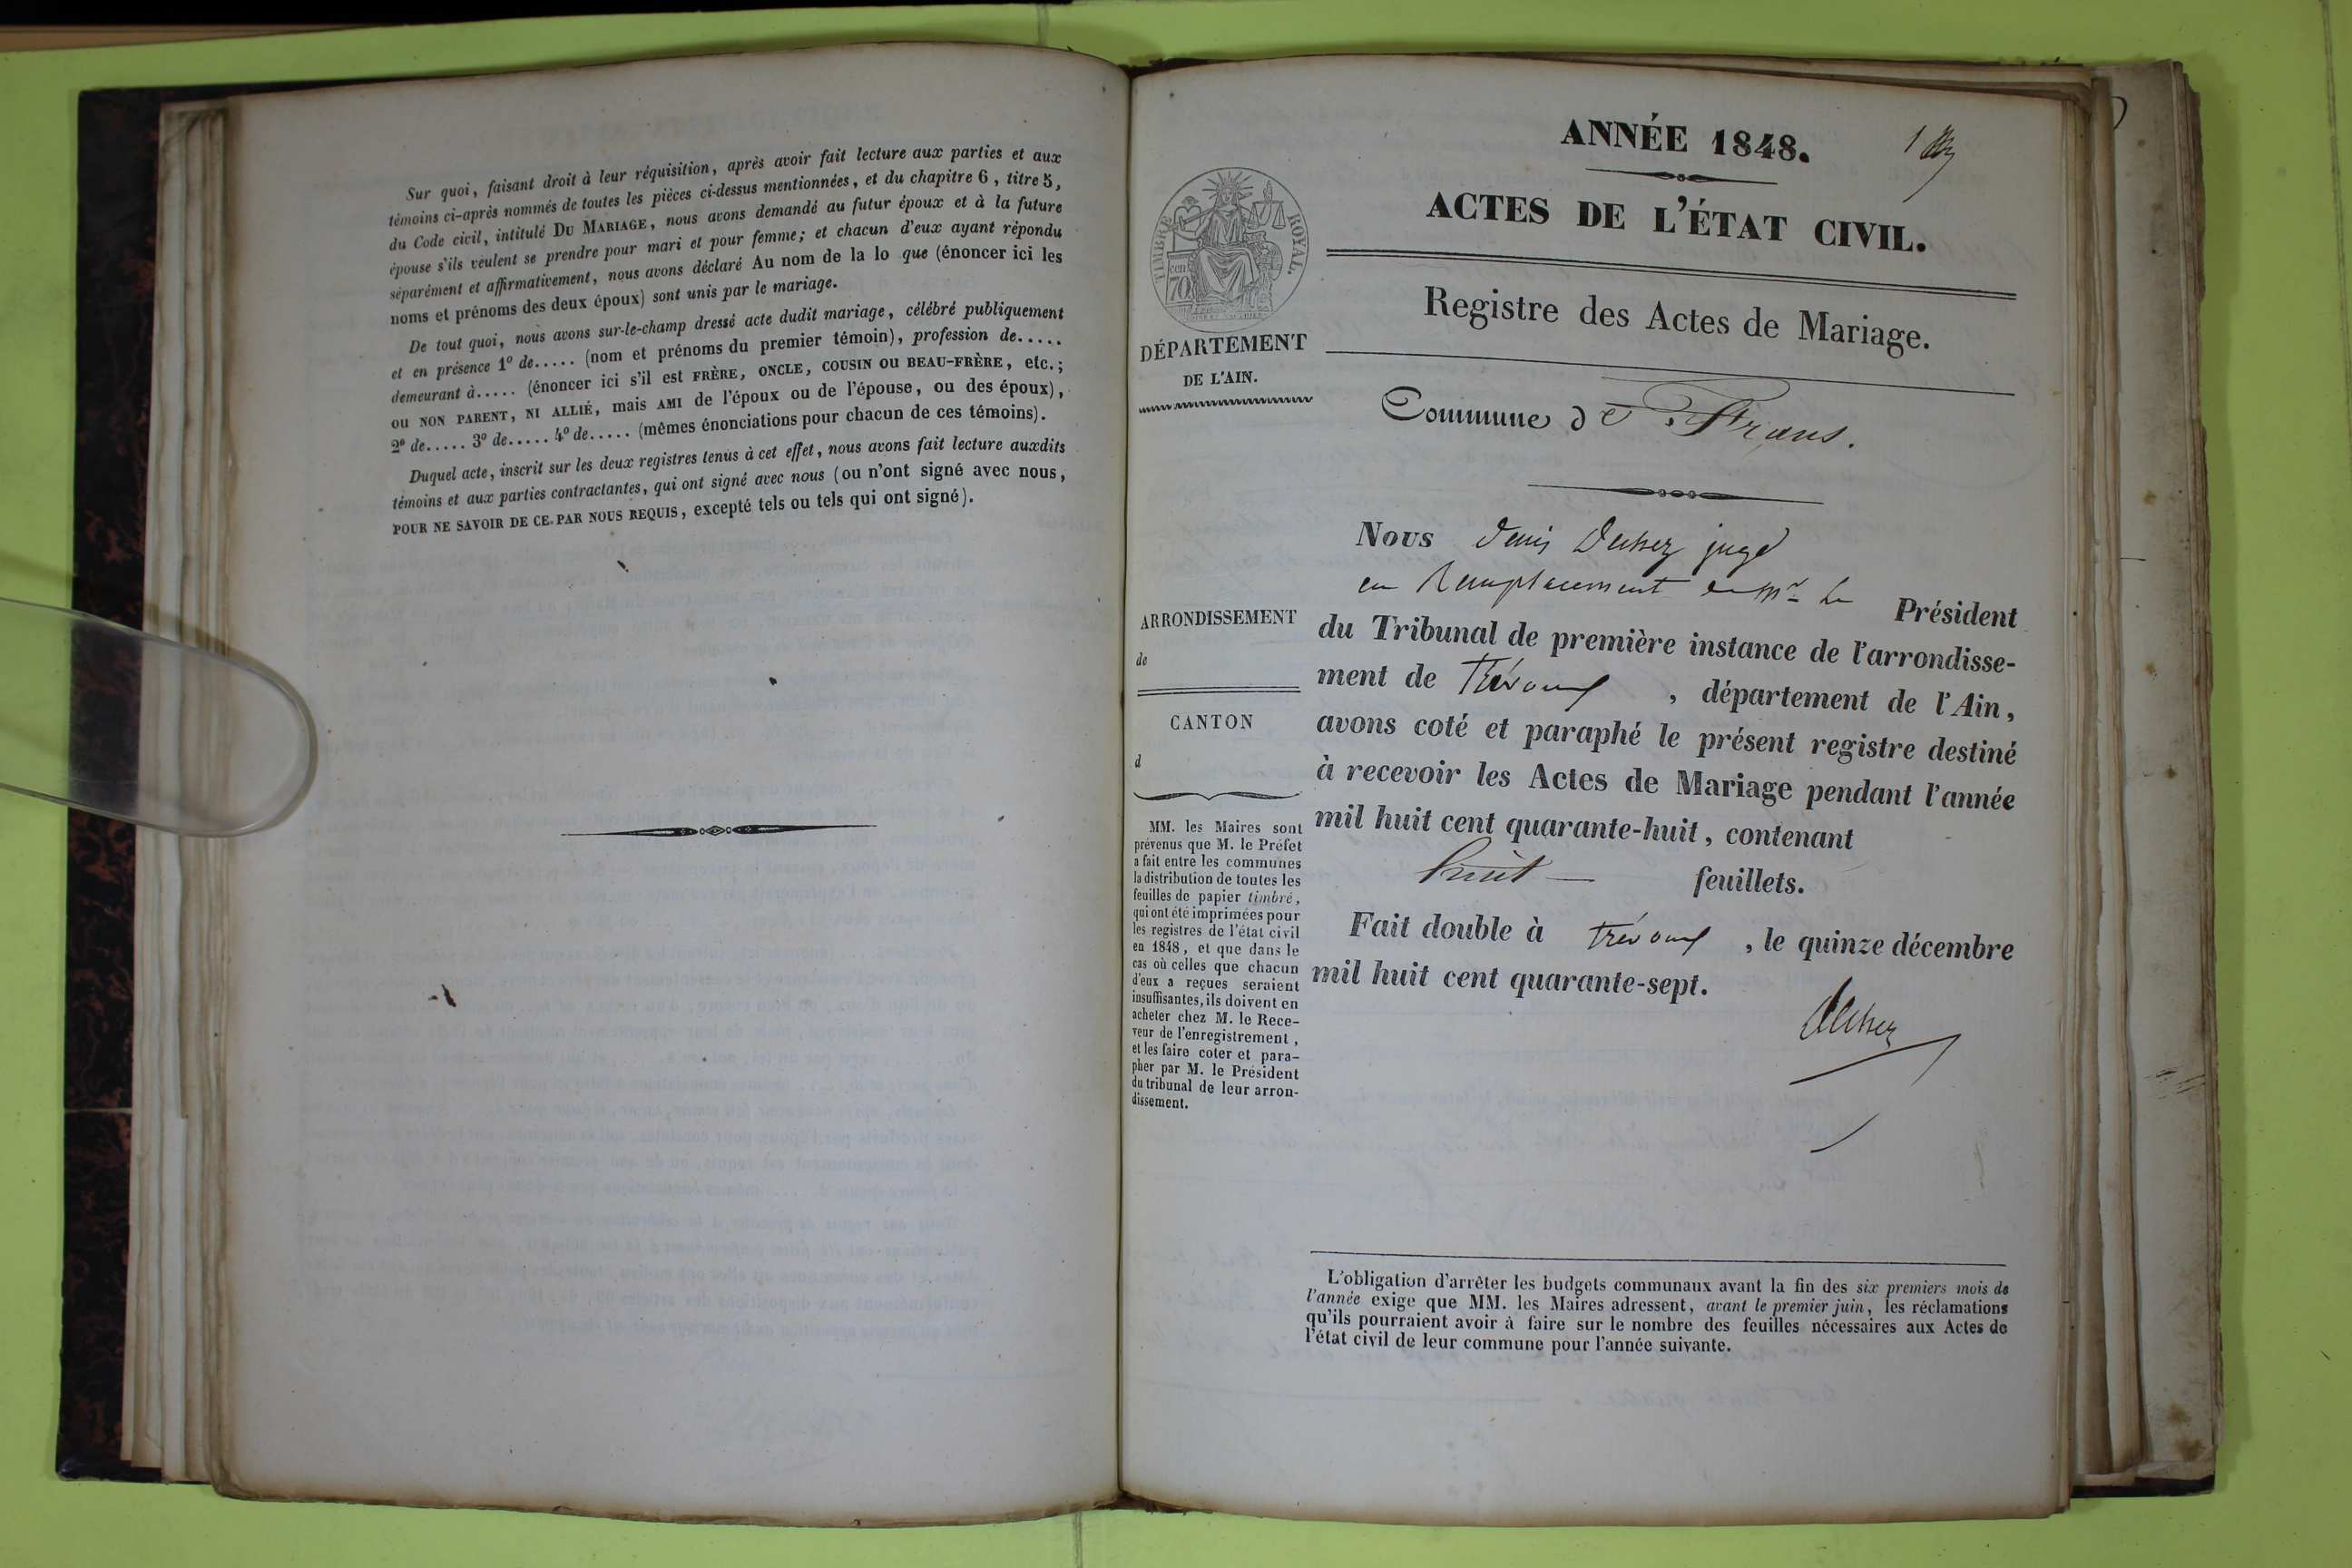 Sur quoi, faisant droit à leur réquisition, après avoir fait lecture aux parties et aux
témoins ci-après nommés de toutes les pièces ci-dessus mentionnées, et du chapitre 6, titre 5,
du Code civil, intitulé DU MARIAGE, nous avons demandé au futur époux et à la future
épouse s'ils veulent se prendre pour mari et pour femme; et chacun d'eux ayant répondu
séparément et affirmativement, nous avons déclaré Au nom de la lo que (énoncer ici les
noms et prénoms des deux époux) sont unis par le mariage.
De tout quoi, nous avons sur-le-champ dressé acte dudit mariage, célébré publiquement
et en présence 1º de..... (nom et prénoms du premier témoin), profession de.....
demeurant à..... (énoncer ici s'il est FRÈRE, ONCLE, COUSIN OU BEAU-FRÈRE, etc.;
OU NON PARENT, NI ALLIÉ, mais AMI de l'époux ou de l'épouse, ou des époux),
2º de..... 3º de..... 4º de..... (mêmes énonciations pour chacun de ces témoins).
Duquel acte, inscrit sur les deux registres tenus à cet effet, nous avons fait lecture auxdits
témoins et aux parties contractantes, qui ont signé avec nous (ou n'ont signé avec nous,
POUR NE SAVOIR DE CE PAR NOUS REQUIS, excepté tels ou tels qui ont signé).
ANNÉE 1848.
1
ACTES DE L'ÉTAT CIVIL.
TIMBRE ROYAL.
cen
70
Registre des Actes de Mariage.
DÉPARTEMENT
DE L'AIN.
Commune de Frans.
Nous Denis Duhez juge
en Remplacement de Mr Le Président
du Tribunal de première instance de l'arrondisse-
ment de Trévoux, département de l'Ain,
avons coté et paraphé le présent registre destiné
à recevoir les Actes de Mariage pendant l'année
mil huit cent quarante-huit, contenant
huit feuillets.
Fait double à trévoux, le quinze décembre
mil huit cent quarante-sept.
ARRONDISSEMENT
de
CANTON
d
MM. les Maires sont
prévenus que M. le Préfet
a fait entre les communes
la distribution de toutes les
feuilles de papier timbré,
qui ont été imprimées pour
les registres de l'état civil
en 1848, et que dans le
cas où celles que chacun
d'eux a reçues seraient
insuffisantes, ils doivent en
acheter chez M. le Rece-
veur de l'enregistrement,
et les faire coter et para-
pher par M. le Président
du tribunal de leur arron-
dissement.
L'obligation d'arrêter les budgets communaux avant la fin des six premiers mois de
l'année exige que MM. les Maires adressent, avant le premier juin, les réclamations
qu'ils pourraient avoir à faire sur le nombre des feuilles nécessaires aux Actes de
l'état civil de leur commune pour l'année suivante.